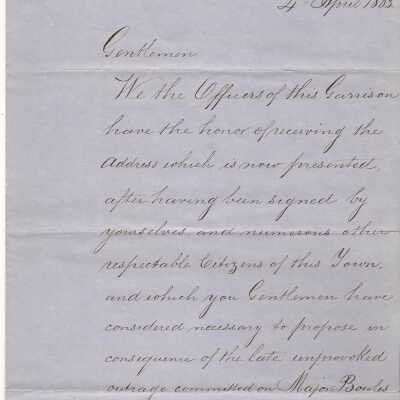 4th April 1863.
Gentlemen
We the Officers of this Garrison
have the honor of receiving the
Address which is now presented,
after having been signed by
yourselves and numerous other
respectable Citizens of this Town,
and which you Gentlemen have
considered necessary to propose in
consequence of the late unprovoked
outrage committed on Major Bowles